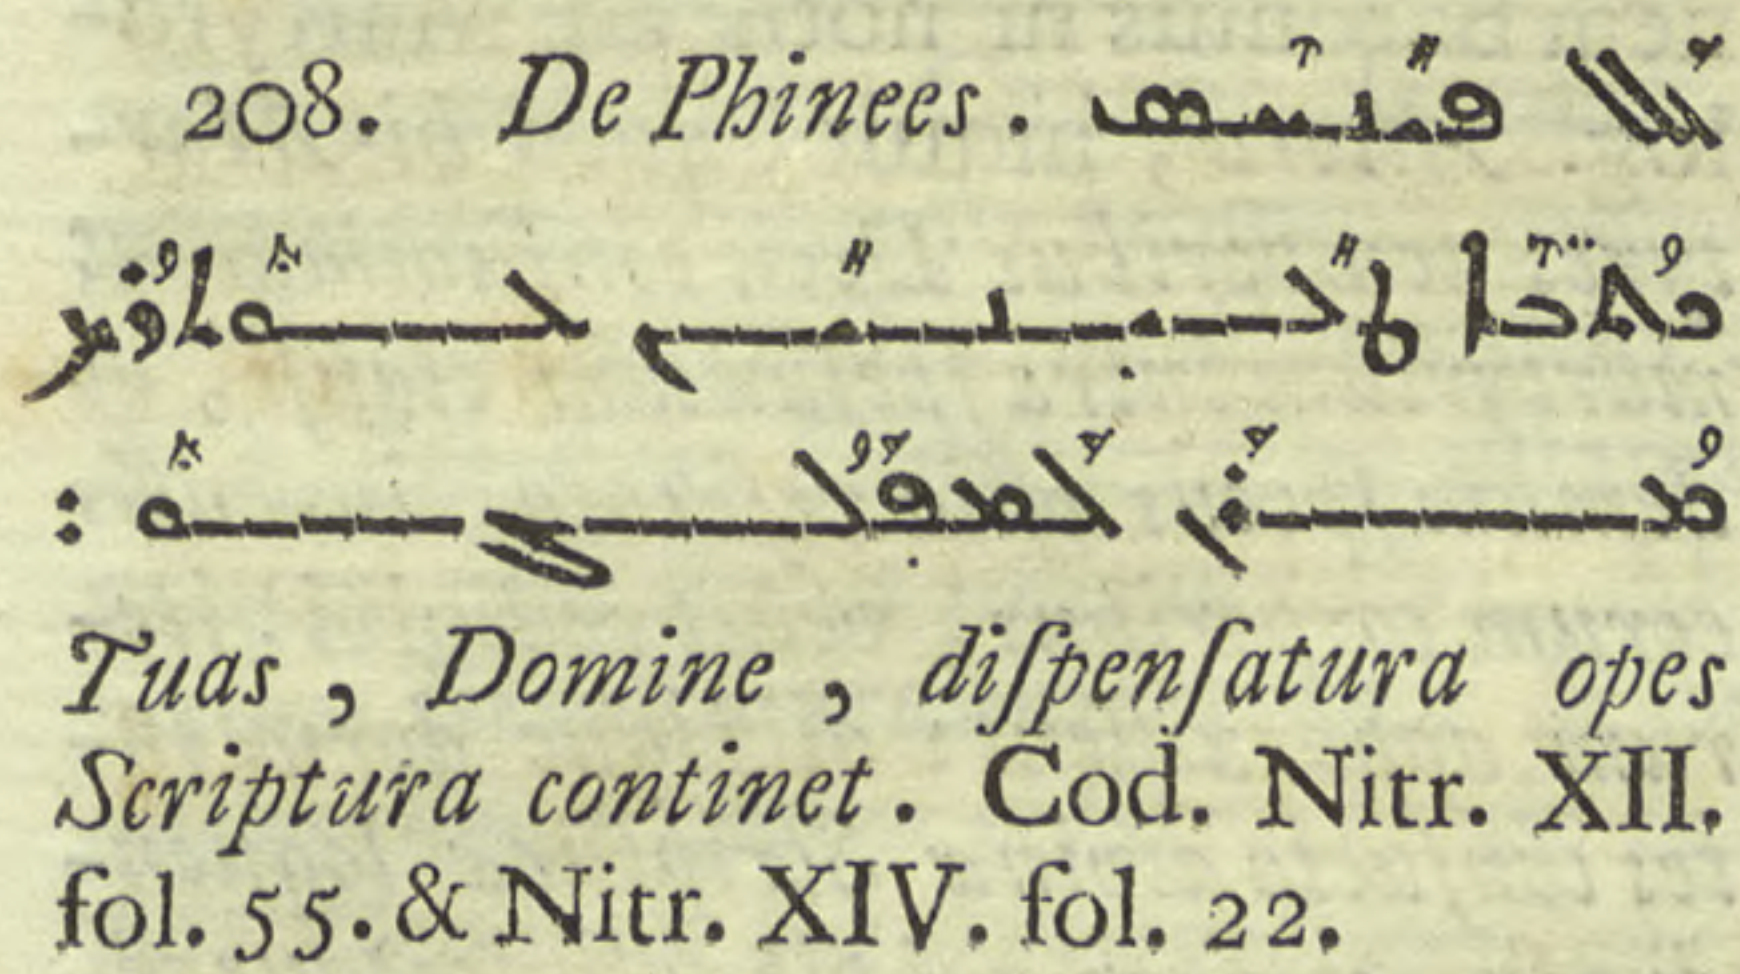 208. De Phinees. ܥܰܠ ܦܺܝܢܶܚܣ
ܟܳܬܒ̈ܶܐ ܛܥܺܝܢܺܝܢ ܥܽܘܬܪܳܟ
ܡܳܪܰܝ ܠܰܡܦܰܠܳܓܽܘ :
Tuas, Domine, diſpenſatura opes
Scriptura continet. Cod. Nitr. XII.
fol. 55. & Nitr. XIV. fol. 22.